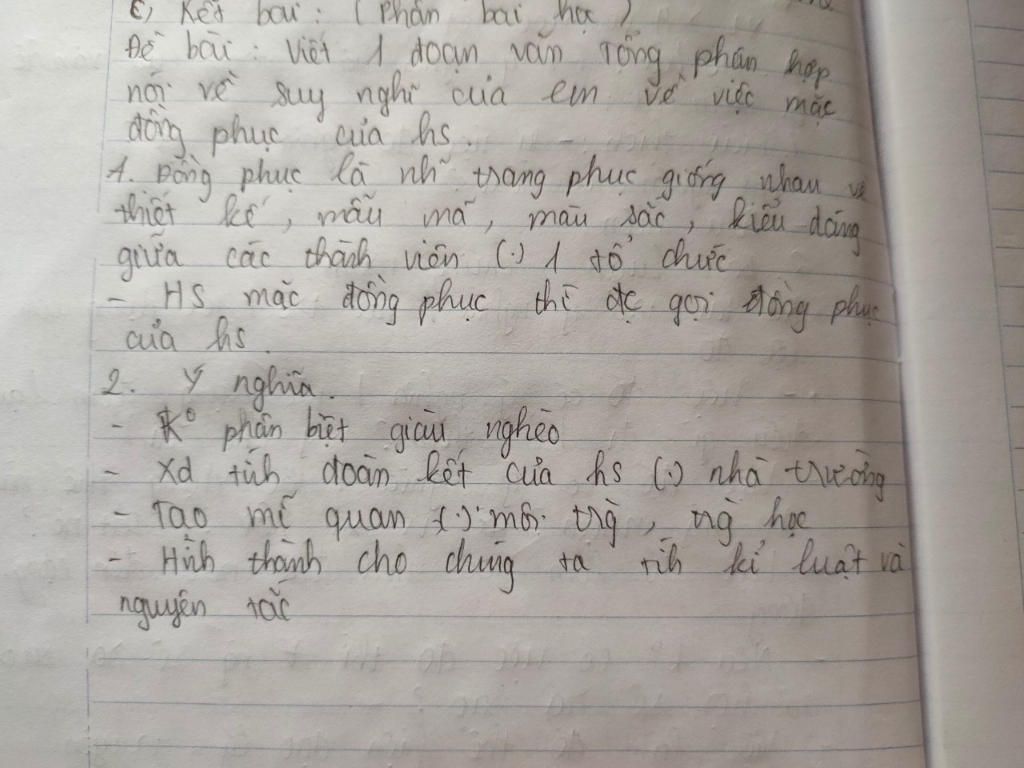 c, Kết bài: (Phần bài học)
Đề bài: Viết 1 đoạn văn Tổng phân hợp
nói về suy nghĩ của em về việc mặc
đồng phục của hs.
1. Đồng phục là nh~ trang phục giống nhau về
thiết kế, mẫu mã, màu sắc, kiểu dáng
giữa các thành viên (.) 1 tổ chức
- HS mặc đồng phục thì đc gọi đồng phục
của hs.
2. Ý nghĩa.
- K° phân biệt giàu nghèo
- Xd tính đoàn kết của hs (.) nhà trường
- Tạo mĩ quan (.) môi trg`, trg` học
- Hình thành cho chúng ta tính kỉ luật và
nguyên tắc